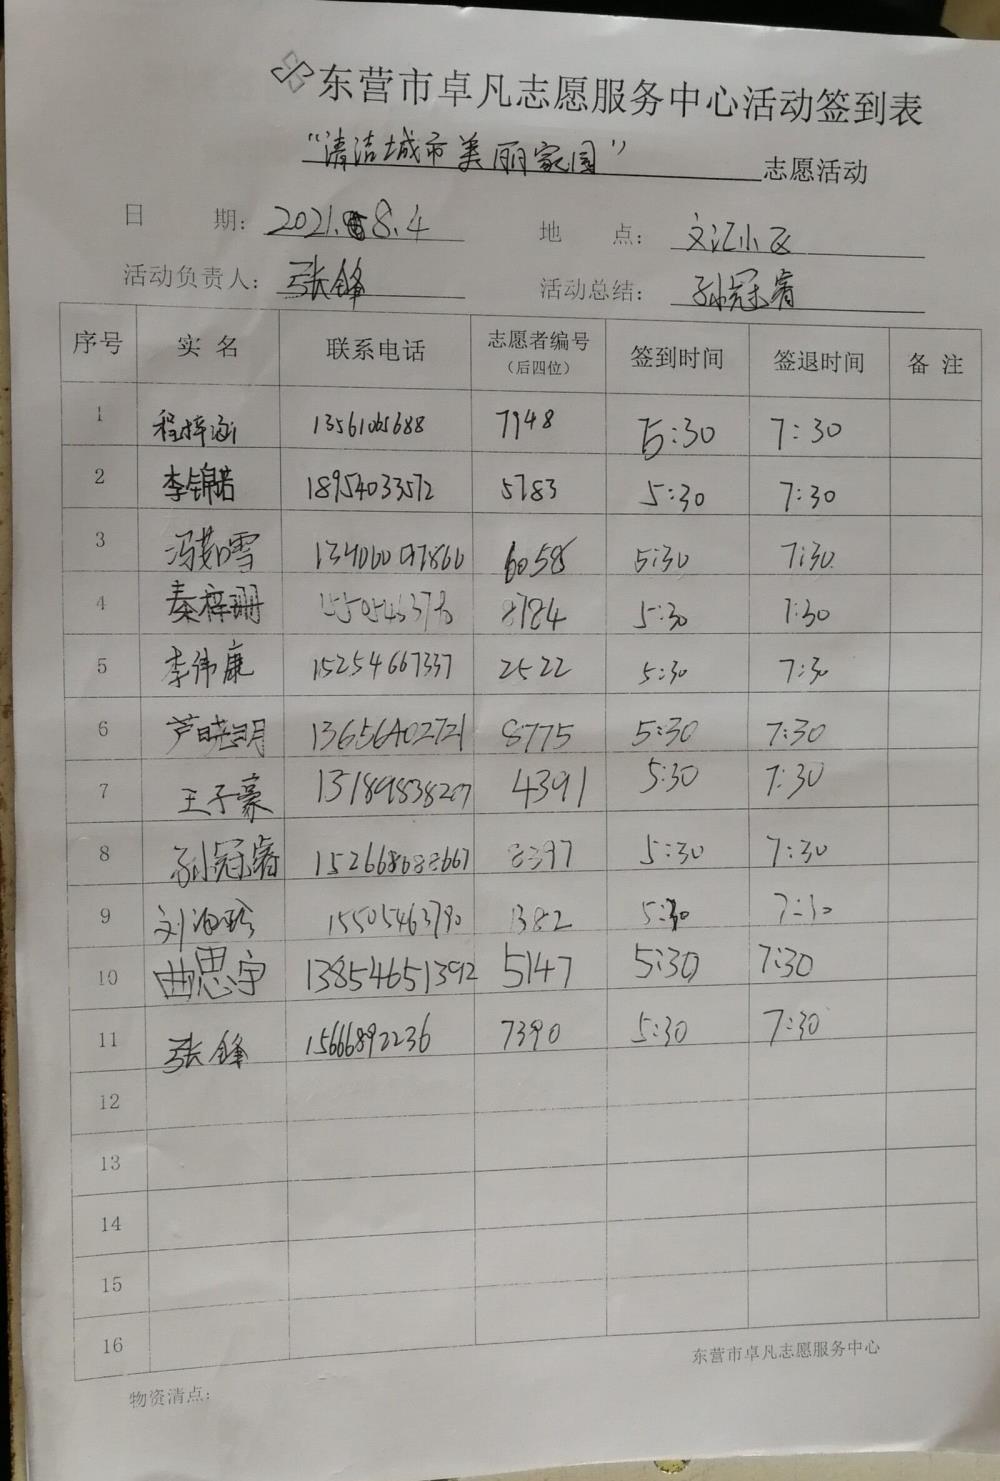 东营市卓凡志愿服务中心活动签到表
“清洁城市美丽家园” 志愿活动
日 期： 2021.8.4 地 点： 文汇小区
活动负责人： 张锋 活动总结： 孙冠睿
序号 实 名 联系电话 志愿者编号（后四位） 签到时间 签退时间 备 注
1 程梓涵 13561065688 7948 5:30 7:30
2 李锦诺 18954033572 5783 5:30 7:30
3 冯茹雪 13406097866 6058 5:30 7:30
4 秦梓珊 8784 5:30 7:30
5 李伟康 15254667337 2522 5:30 7:30
6 芦晓明 13656402721 8775 5:30 7:30
7 王子豪 13189938207 4391 5:30 7:30
8 孙冠睿 15266868667 8397 5:30 7:30
9 15505463790 1382 5:30 7:30
10 曲思宇 13854651392 5147 5:30 7:30
11 张锋 15666892236 7390 5:30 7:30
12
13
14
15
16
东营市卓凡志愿服务中心
物资清点：